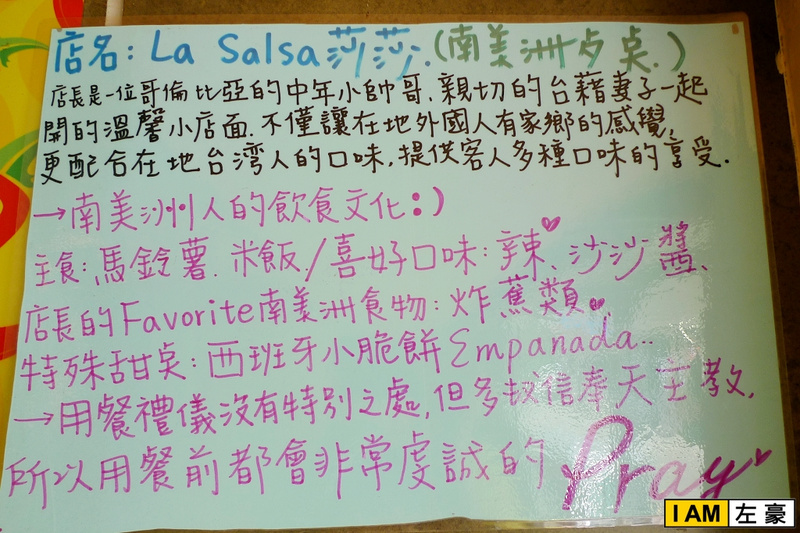 店名: La Salsa莎莎.(南美洲步桌.)
店長是一位哥倫比亞的中年小帥哥、親切的台藉妻子一起
開的溫馨小店面.不僅讓在地外國人有家鄉的感覺,
更配合在地台湾人的口味,提供客人多種口味的享受.
→南美洲人的飲食文化:)
主食:馬鈴薯.米飯./喜好口味:辣、沙沙醬、
店長的Favorite南美洲食物:炸蕉類.
特殊甜桌:西班牙小脆餅Empanada..
→用餐禮儀沒有特別之處,但多 信奉天主教.
所以用餐前都會非常虔誠的Pray
I AM 左豪